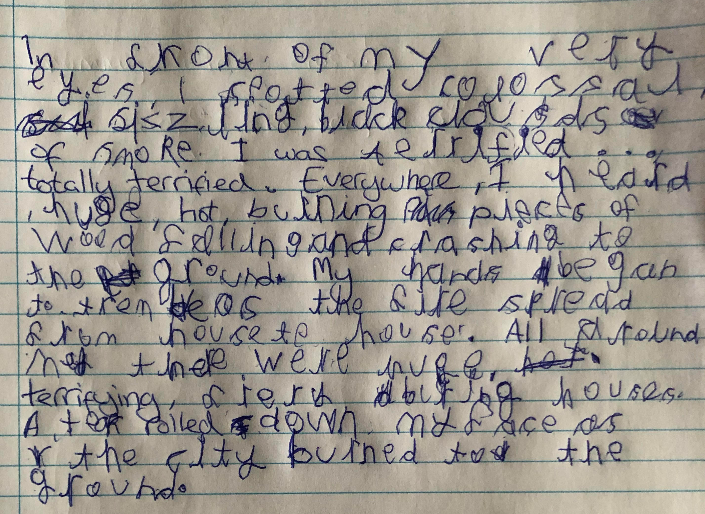 In front of my very
eyes, I spotted colossal,
sizzling, black clouds
of smoke. I was terrified...
totally terrified. Everywhere, I heard
huge, hot, burning pieces of
wood falling and crashing to
the ground. My hands began
to trem as the fire spread
from house to house. All around
me there were huge,
terrifying, firery buring houses.
A ter rolled down my face as
the city burned to the
ground.